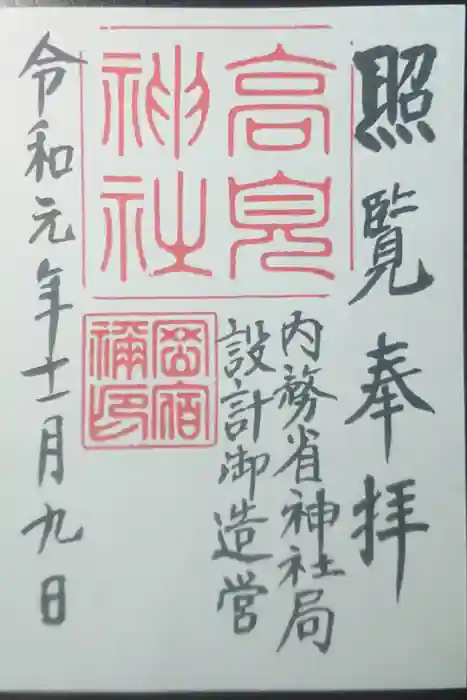 照覧奉拝
高見神社
内務省神社局
設計御造営
岡宿禰印
令和元年十一月九日